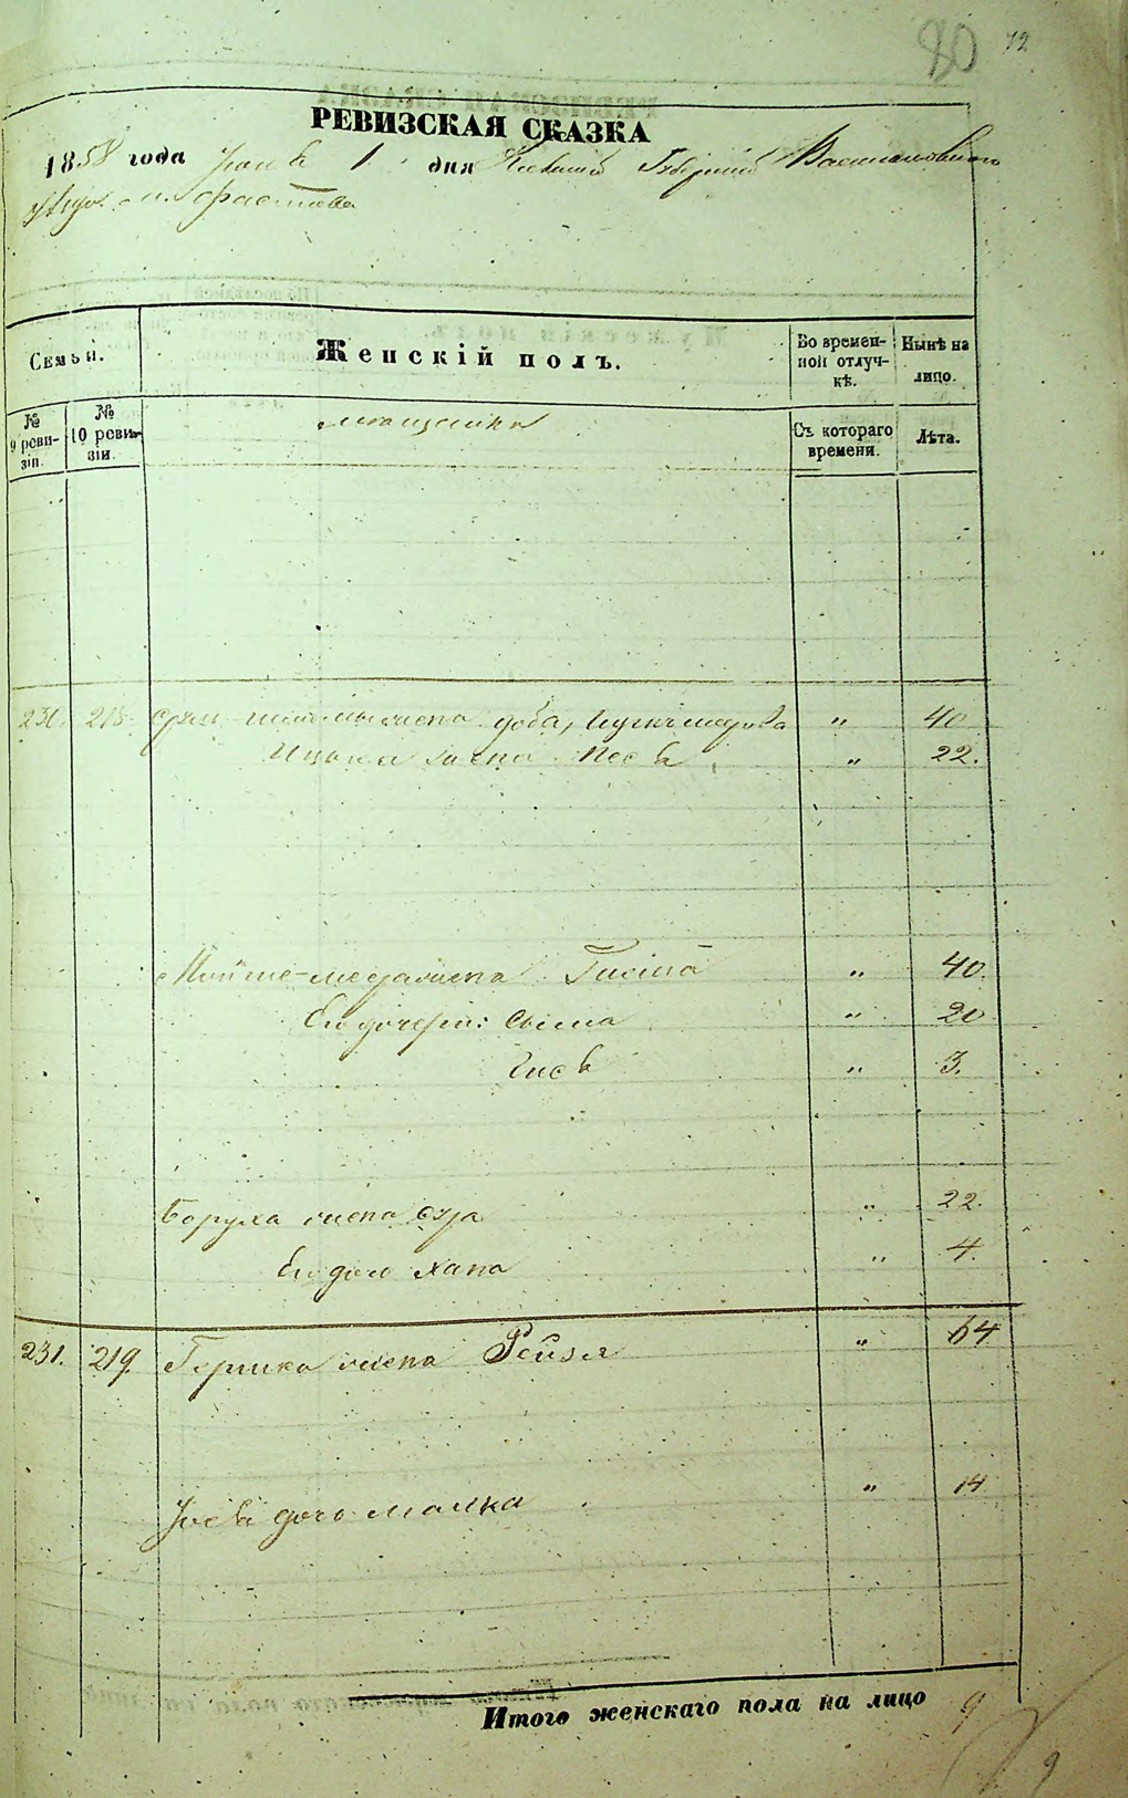 80 72
РЕВИЗСКАЯ СКАЗКА
1858 года Юня 1 дня Кіевской Губерніи Васильковскаго
уезда м. Фастова
Семьи.
Женскій полъ.
Во времен-
ной отлуч-
кѣ.
Нынѣ на
лицо.
№
9 реви-
зіи.
№
10 реви-
зіи.
Съ котораго
времени.
Лѣта.
230. 218. жена Доба, " 40
Ицька жена Песя " 22.
жена " 40.
Его дочери: " 20
Гися " 3.
Боруха жена Сура " 22.
Его дочь Хана " 4.
231. 219. Гершка жена Рейзя " 64
дочь Малка " 14
Итого женскаго пола на лицо 9
9